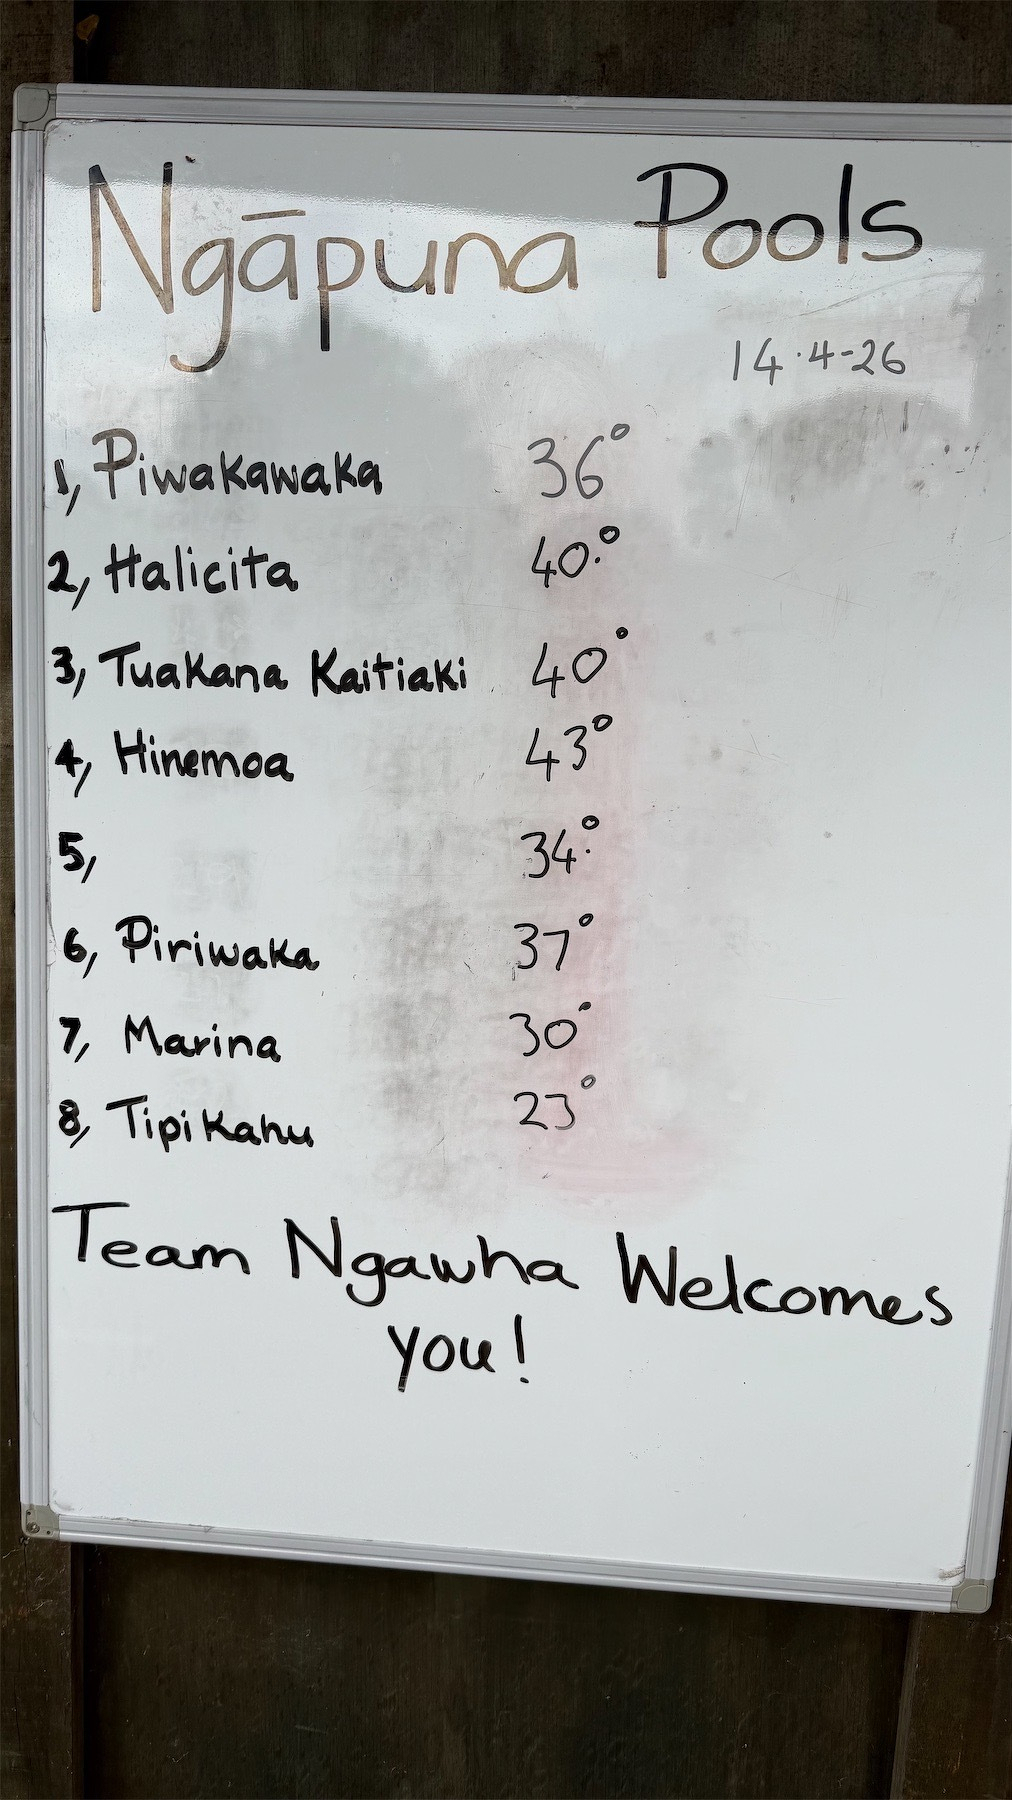 Ngāpuna Pools
14·4-26
1, Piwakawaka 36°
2, Halicita 40.°
3, Tuakana Kaitiaki 40°
4, Hinemoa 43°
5, 34.°
6, Piriwaka 37°
7, Marina 30°
8, Tipi Kahu 23°
Team Ngawha Welcomes
you!